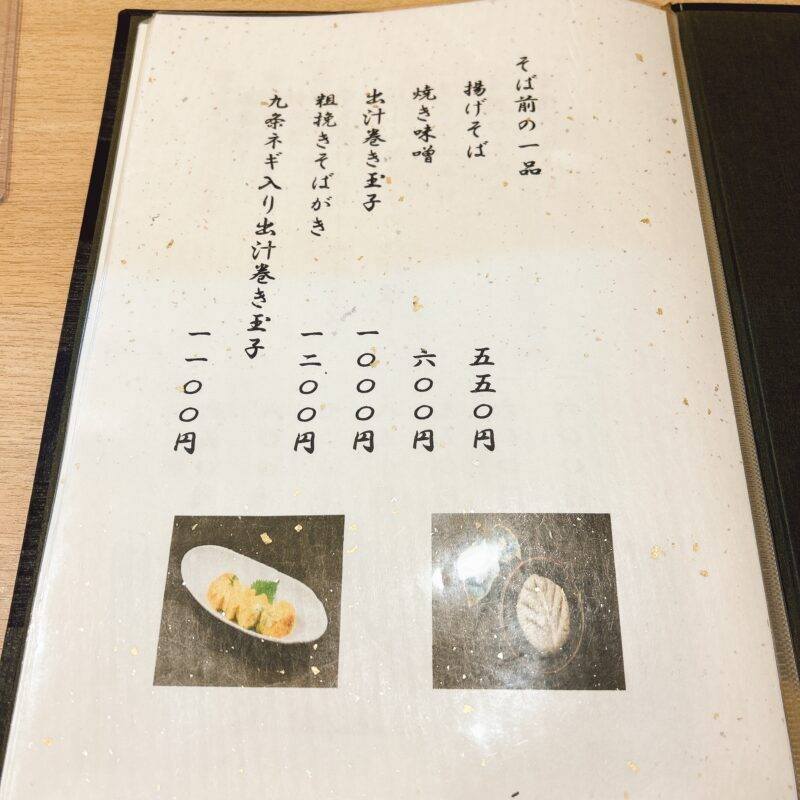 そば前の一品
揚げそば 五五〇円
焼き味噌 六〇〇円
出汁巻き玉子 一〇〇〇円
粗挽きそばがき 一二〇〇円
九条ネギ入り出汁巻き玉子 一一〇〇円